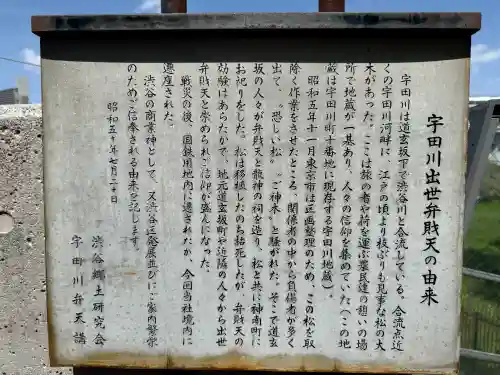 宇田川出世弁財天の由来
宇田川は道玄坂下で渋谷川と合流している。合流点近
くの宇田川河畔に、江戸の頃より枝ぶりも見事な松の大
木があった。ここは旅の者や荷を運ぶ農民達の憩いの場
所で地蔵が一基あり、人々の信仰を集めていた(この地
蔵は宇田川町十番地に現存する宇田川地蔵)。
昭和五年十一月東京市は区画整理のため、この松を取
除く作業をさせたところ、関係者の中から負傷者が多く
出て、〝恐しい松〟〝ご神木〟と騒がれた。そこで道玄
坂の人々が弁財天と龍神の祠を造り、松と共に神南町に
お祀りをした。松は移植したのち枯死したが、弁財天の
効験はあらたかで、地元道玄坂町や近隣の人々から出世
弁財天と崇められご信仰が盛んになった。
戦災の後、国鉄用地内に遷されたが、今回当社境内に
遷座された。
渋谷の商業神として、又渋谷区発展並びにご家内繁栄
のためご信奉される由来を記します。
昭和五十
年七月二十日
渋谷郷土研究会
宇田川弁天講